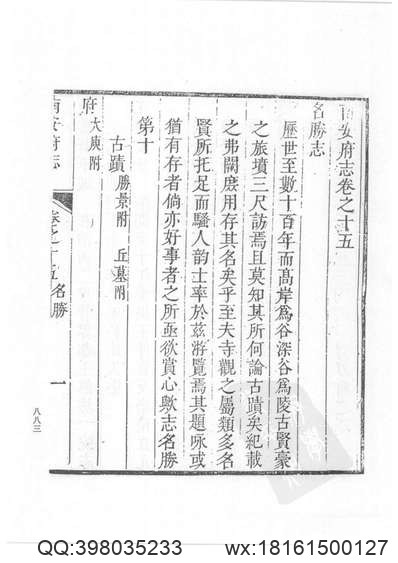 南安府志卷之十五
名勝志
歷世至數十百年而高岸爲谷深谷爲陵古賢豪
之旅墳三尺訪焉且莫知其所何論古蹟矣紀載
之弗闕庶用存其名矣乎至夫寺觀之屬類多名
賢所托足而騷人韵士率於茲游覽焉其題咏或
猶有存者倘亦好事者之所亟欲賞心歟志名勝
第十
古蹟 勝景附 丘墓附
府 大庾附
南安府志 卷之十五 名勝 一
八八三
QQ:398035233 wx:18161500127